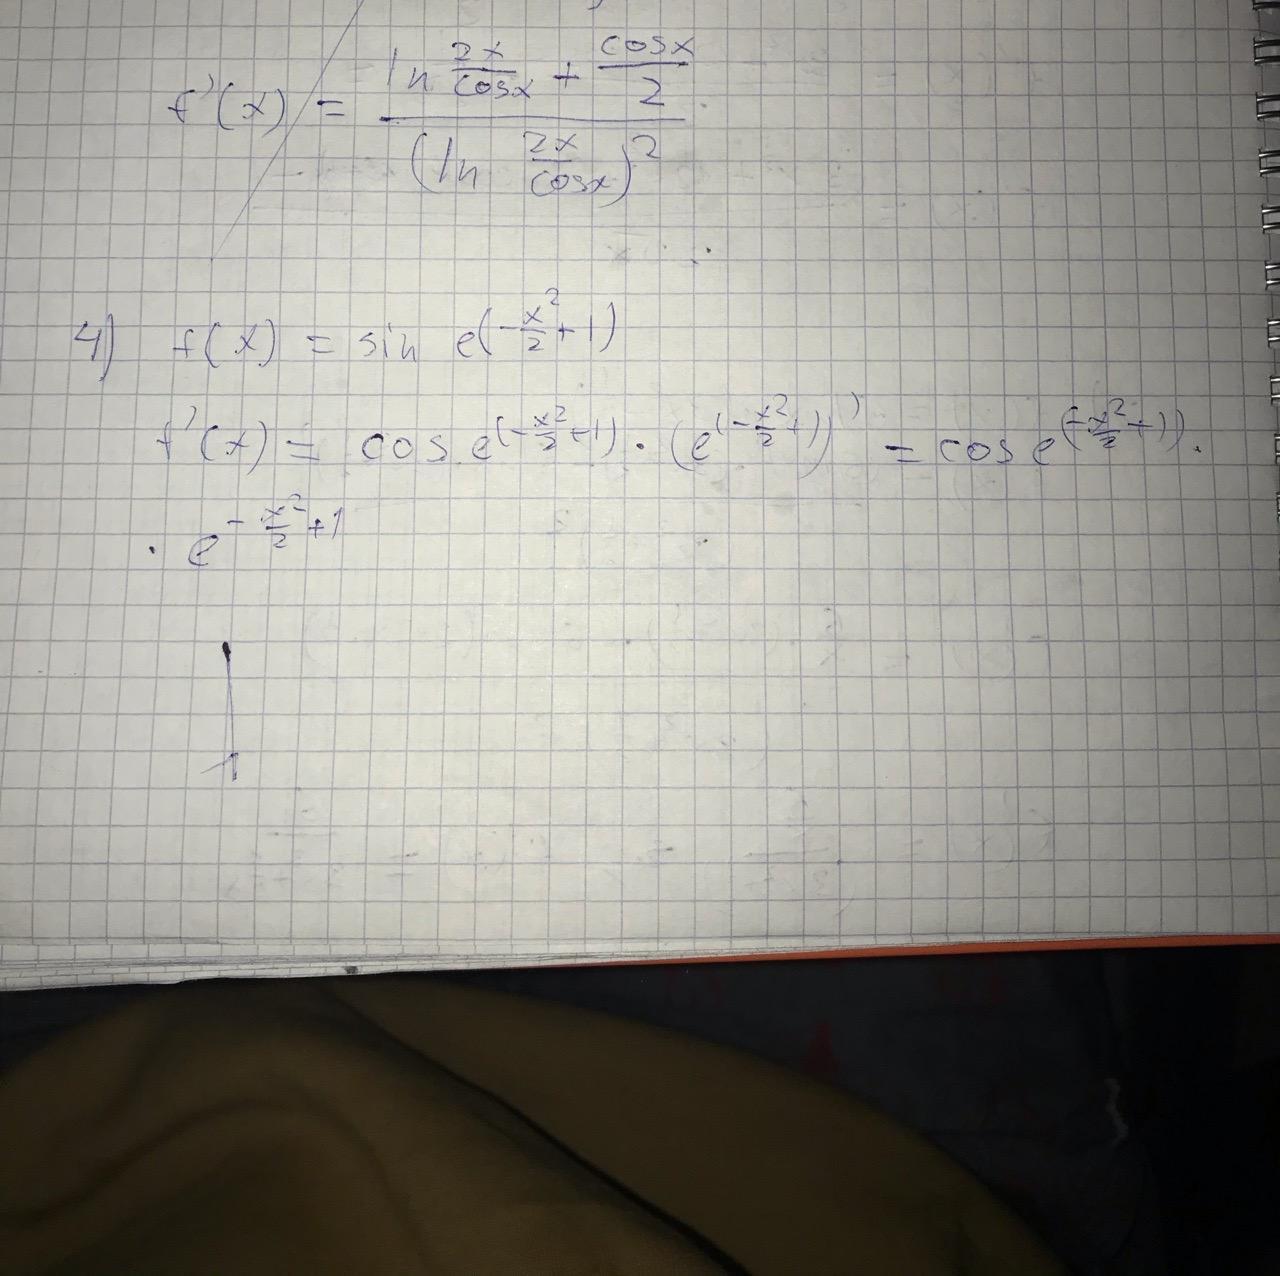 f'(x) = (ln 2x/cosx + cosx/2) / (ln 2x/cosx)^2
4) f(x) = sin e^(-x^2/2+1)
f'(x) = cos e^(-x^2/2+1) · (e^(-x^2/2+1))' = cos e^(-x^2/2+1)) ·
· e^-x^2/2+1